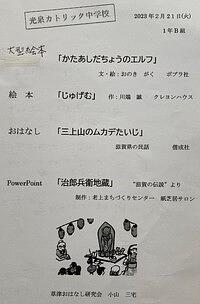 光泉カトリック中学校
2023年2月21日(火)
1年B組
大型絵本
「かたあしだちょうのエルフ」
文・絵:おのき がく ポプラ社
絵本 「じゅげむ」 作:川端 誠 クレヨンハウス
おはなし 「三上山のムカデたいじ」
滋賀県の民話 偕成社
PowerPoint 「治郎兵衛地蔵」 "滋賀の伝説" より
制作:老上まちづくりセンター 紙芝居サロン
草津おはなし研究会 小山 三宅